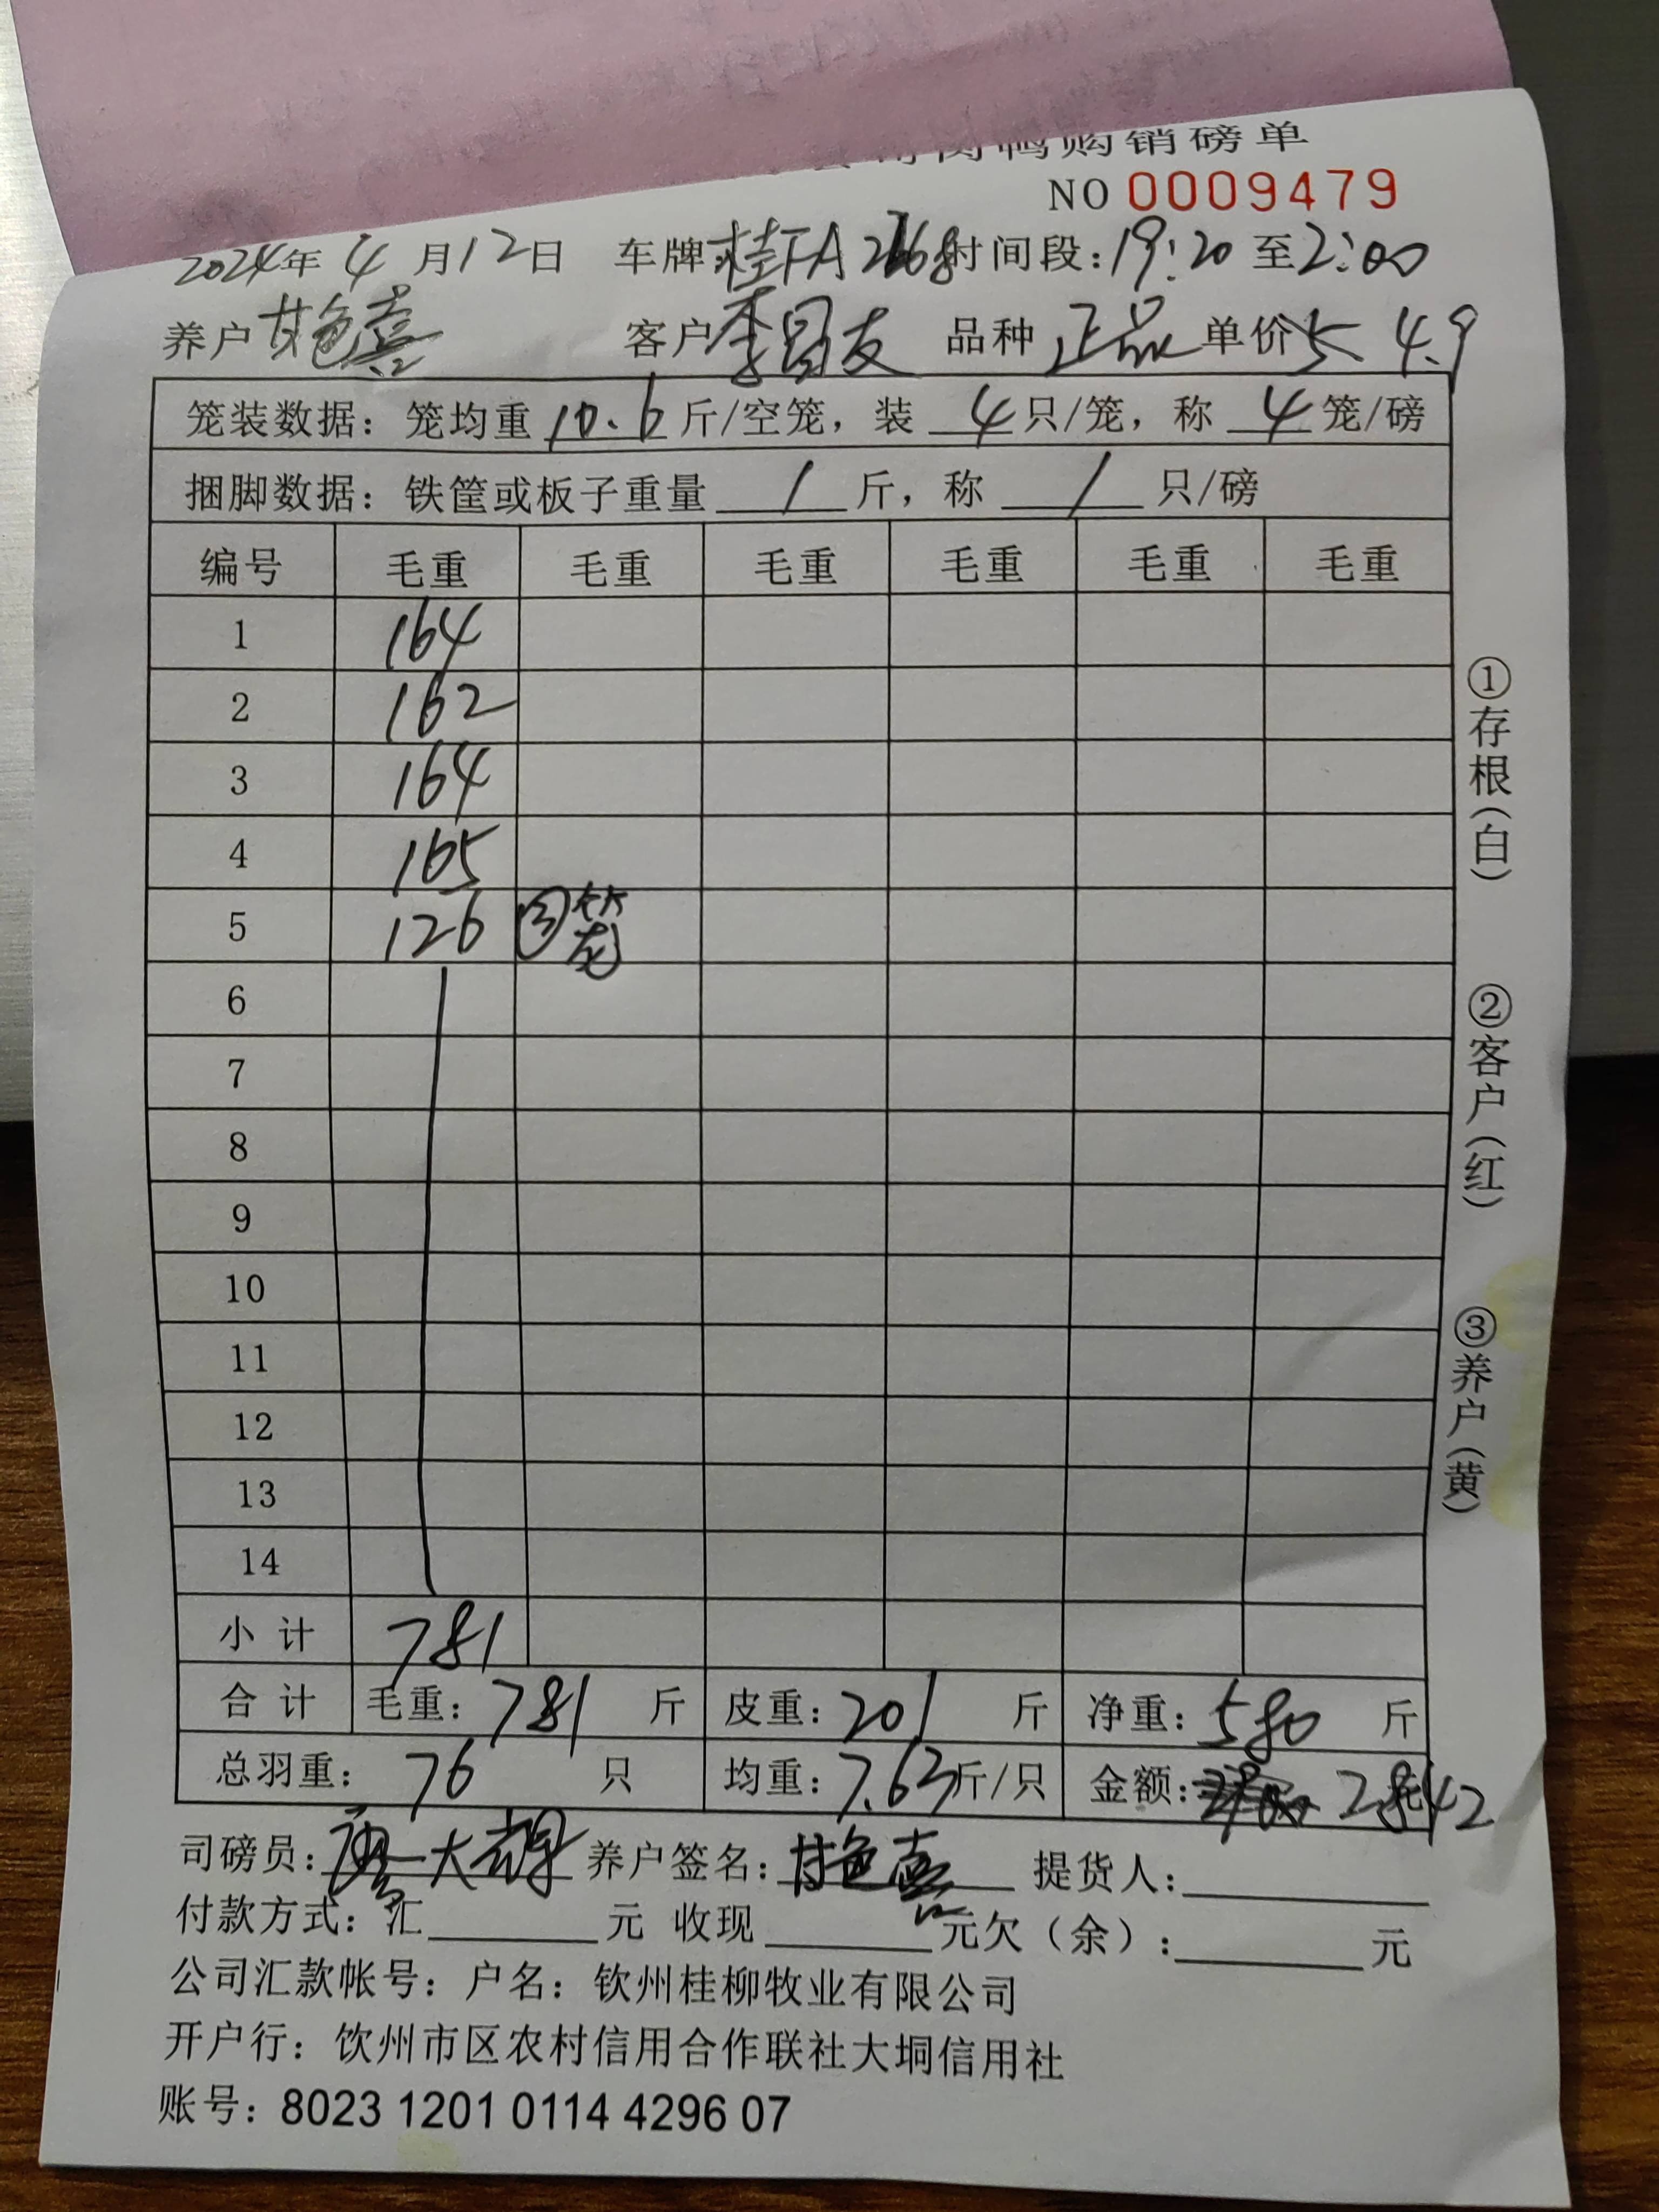 购销磅单
NO 0009479
2024年 4 月12日 车牌桂FA 时间段:19:20 至2:00
养户甘艳喜 客户李昌友 品种 正品 单价5 4.9
笼装数据:笼均重 10.6 斤/空笼,装 4 只/笼,称 4 笼/磅
捆脚数据:铁筐或板子重量 / 斤,称 / 只/磅
编号 毛重 毛重 毛重 毛重 毛重 毛重
1 164
2 162
3 164
4 165
5 126 ③笼
6
7
8
9
10
11
12
13
14
小 计 781
合 计 毛重:781 斤 皮重:201 斤 净重:580 斤
总羽重:76 只 均重:7.63斤/只 金额:2842
司磅员:廖大 养户签名:甘艳喜 提货人:
付款方式:汇 元 收现 元欠(余):元
公司汇款帐号:户名:钦州桂柳牧业有限公司
开户行:钦州市区农村信用合作联社大垌信用社
账号:8023 1201 0114 4296 07
①存根(白)
②客户(红)
③养户(黄)